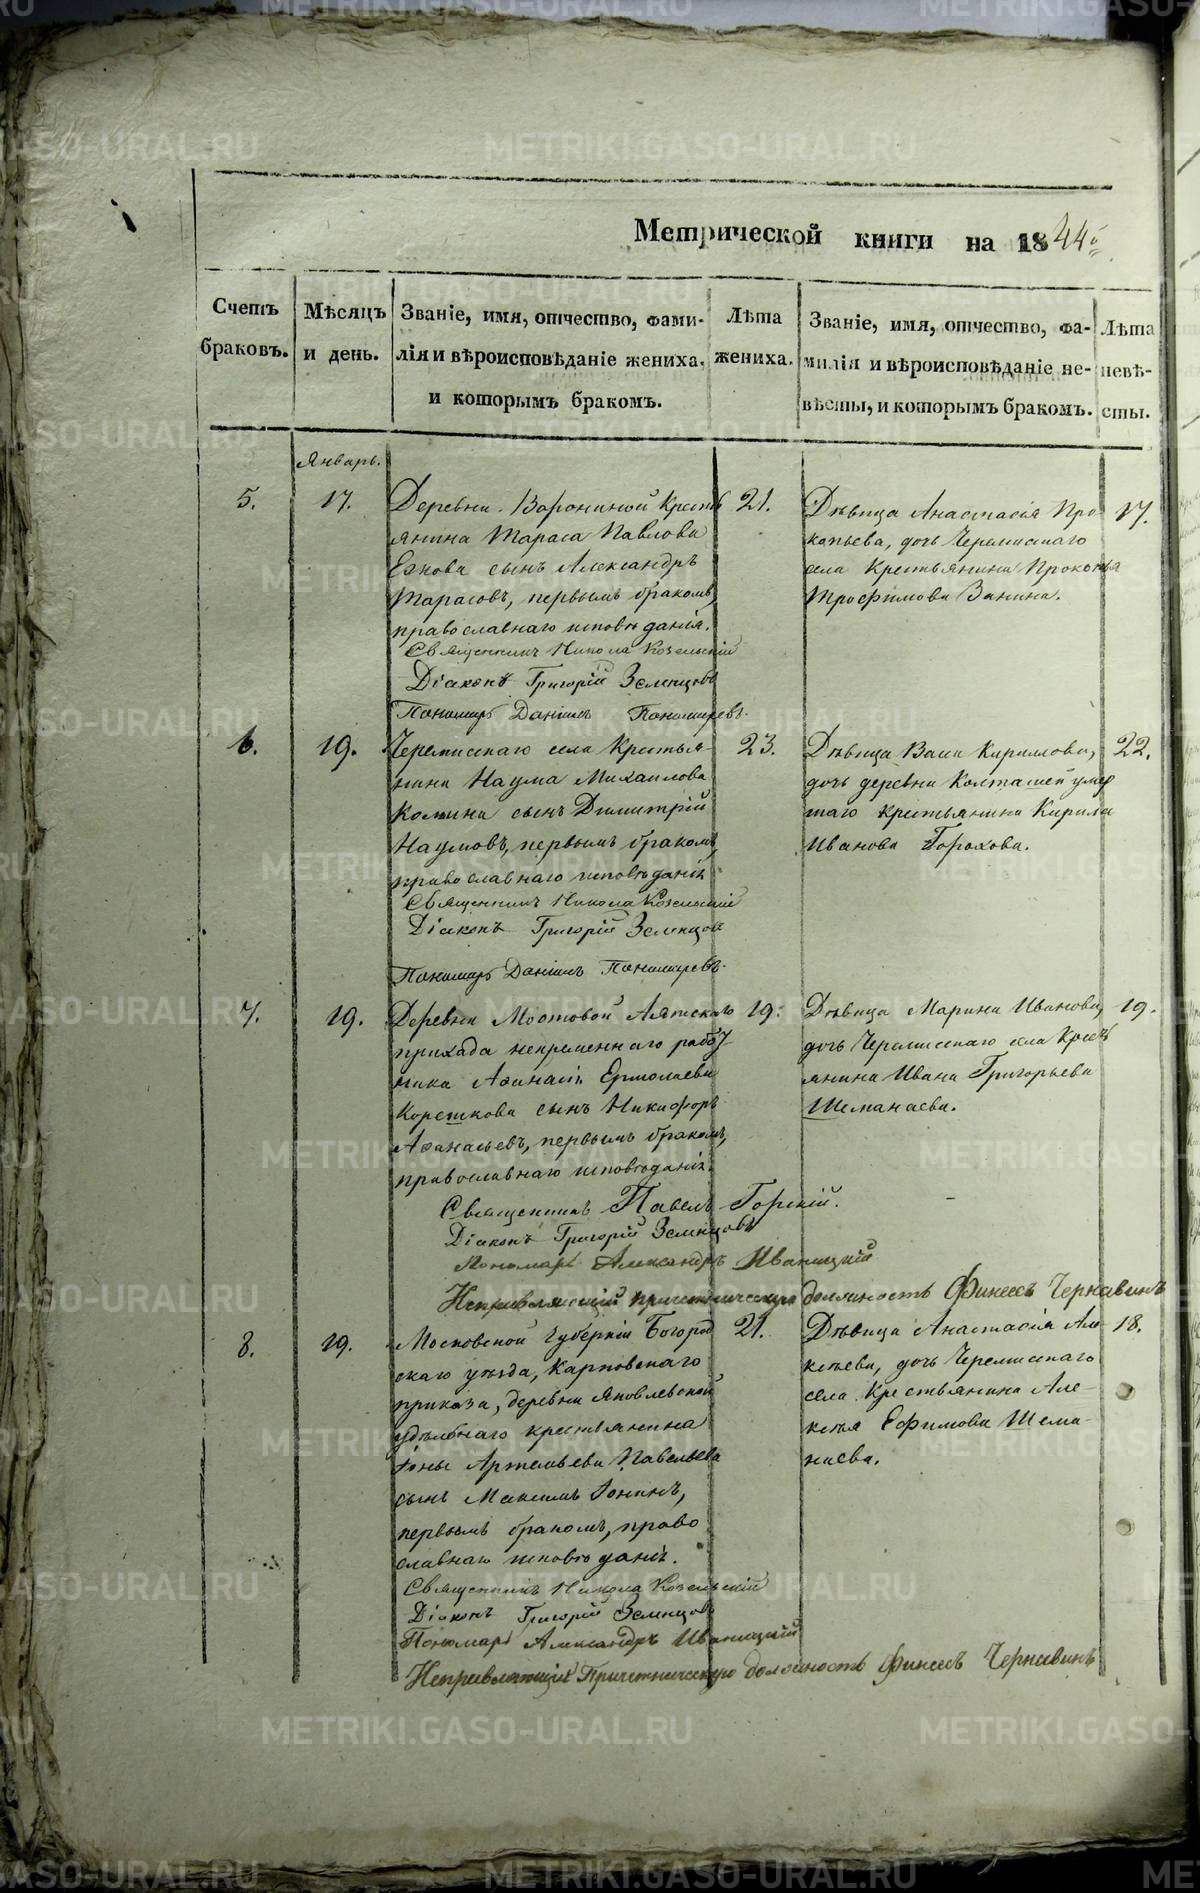 Метрической книги на 1844й
Счетъ браковъ.
Мѣсяцъ и день.
Званіе, имя, отчество, фами-
лія и вѣроисповѣданіе жениха,
и которымъ бракомъ.
Лѣта
жениха.
Званіе, имя, отчество, фа-
милія и вѣроисповѣданіе не-
вѣсты, и которымъ бракомъ.
Лѣта
невѣ-
сты.
Январь.
5.
17.
Деревни Ворониной Кресть
янина Тараса Павлова
сынъ Александръ
Тарасовъ, первымъ бракомъ,
православнаго исповѣданія.
Священникъ Никола Козельскій
Діаконъ Григорій Земляцовъ
Пономарь Даніилъ Пономаревъ.
21.
Дѣвица Анастасія Про
копьева, дочь Черемисскаго
села Крестьянина Прокопья
Трофимова Ванина.
17.
6.
19.
Черемисскаго села Крестья-
нина Наума Михаилова
Комина сынъ Димитрій
Наумовъ, первымъ бракомъ,
православнаго исповѣданія
Священникъ Никола Козельскій
Діаконъ Григорій
Пономарь Даніилъ Пономаревъ.
23.
Дѣвица Васса Кирилова,
дочь деревни Колташей умер
шаго крестьянина Кирила
Иванова Горохова.
22.
7.
19.
Деревни Мостовой Аятскаго
прихода непременнаго рабо
ника Афанасія Ермолаева
Корешкова сынъ Никифоръ
Афанасьевъ, первымъ бракомъ,
православнаго исповѣданія.
Священникъ Павелъ Горскій.
Діаконъ Григорій
Пономарь Александръ Иваницкій
Исправляющій причетническую должность Финеесъ Чернавинъ
19.
Дѣвица Марина Иванова,
дочь Черемисскаго села Кресть
янина Ивана Григорьева
Шеманаева.
19.
8.
19.
Московской Губерніи Богород
скаго уѣзда, Карповскаго
приказа, деревни Яковлевской
удѣльнаго крестьянина
Іоны Артемьева Павельева
сынъ Максимъ Іонинъ,
первымъ бракомъ, право
славнаго исповѣданія.
Священникъ Никола Козельскій
Діаконъ Григорій
Пономарь Александръ Иваницкій
Исправляющій Причетническую должность Финеесъ Чернавинъ
21.
Дѣвица Анастасія Але
ксѣева, дочь Черемисскаго
села Крестьянина Але-
ксѣя Ефимова Шема-
наева.
18.